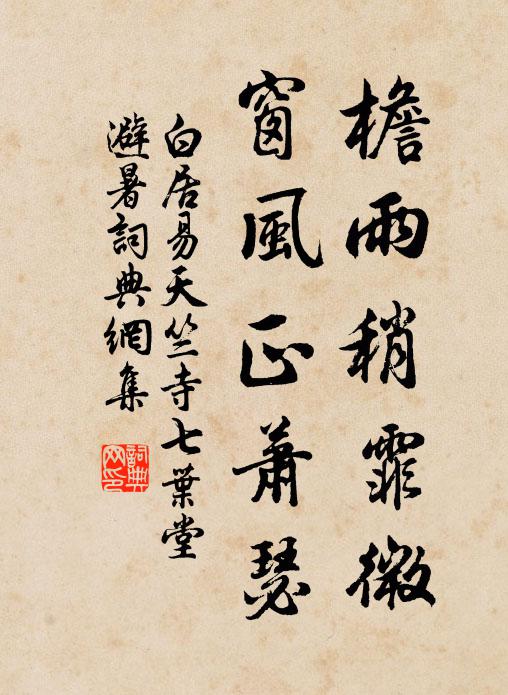 檐雨稍霏微
窗風正蕭瑟
白居易天竺寺七葉堂
避暑詞典網集
詞典網印